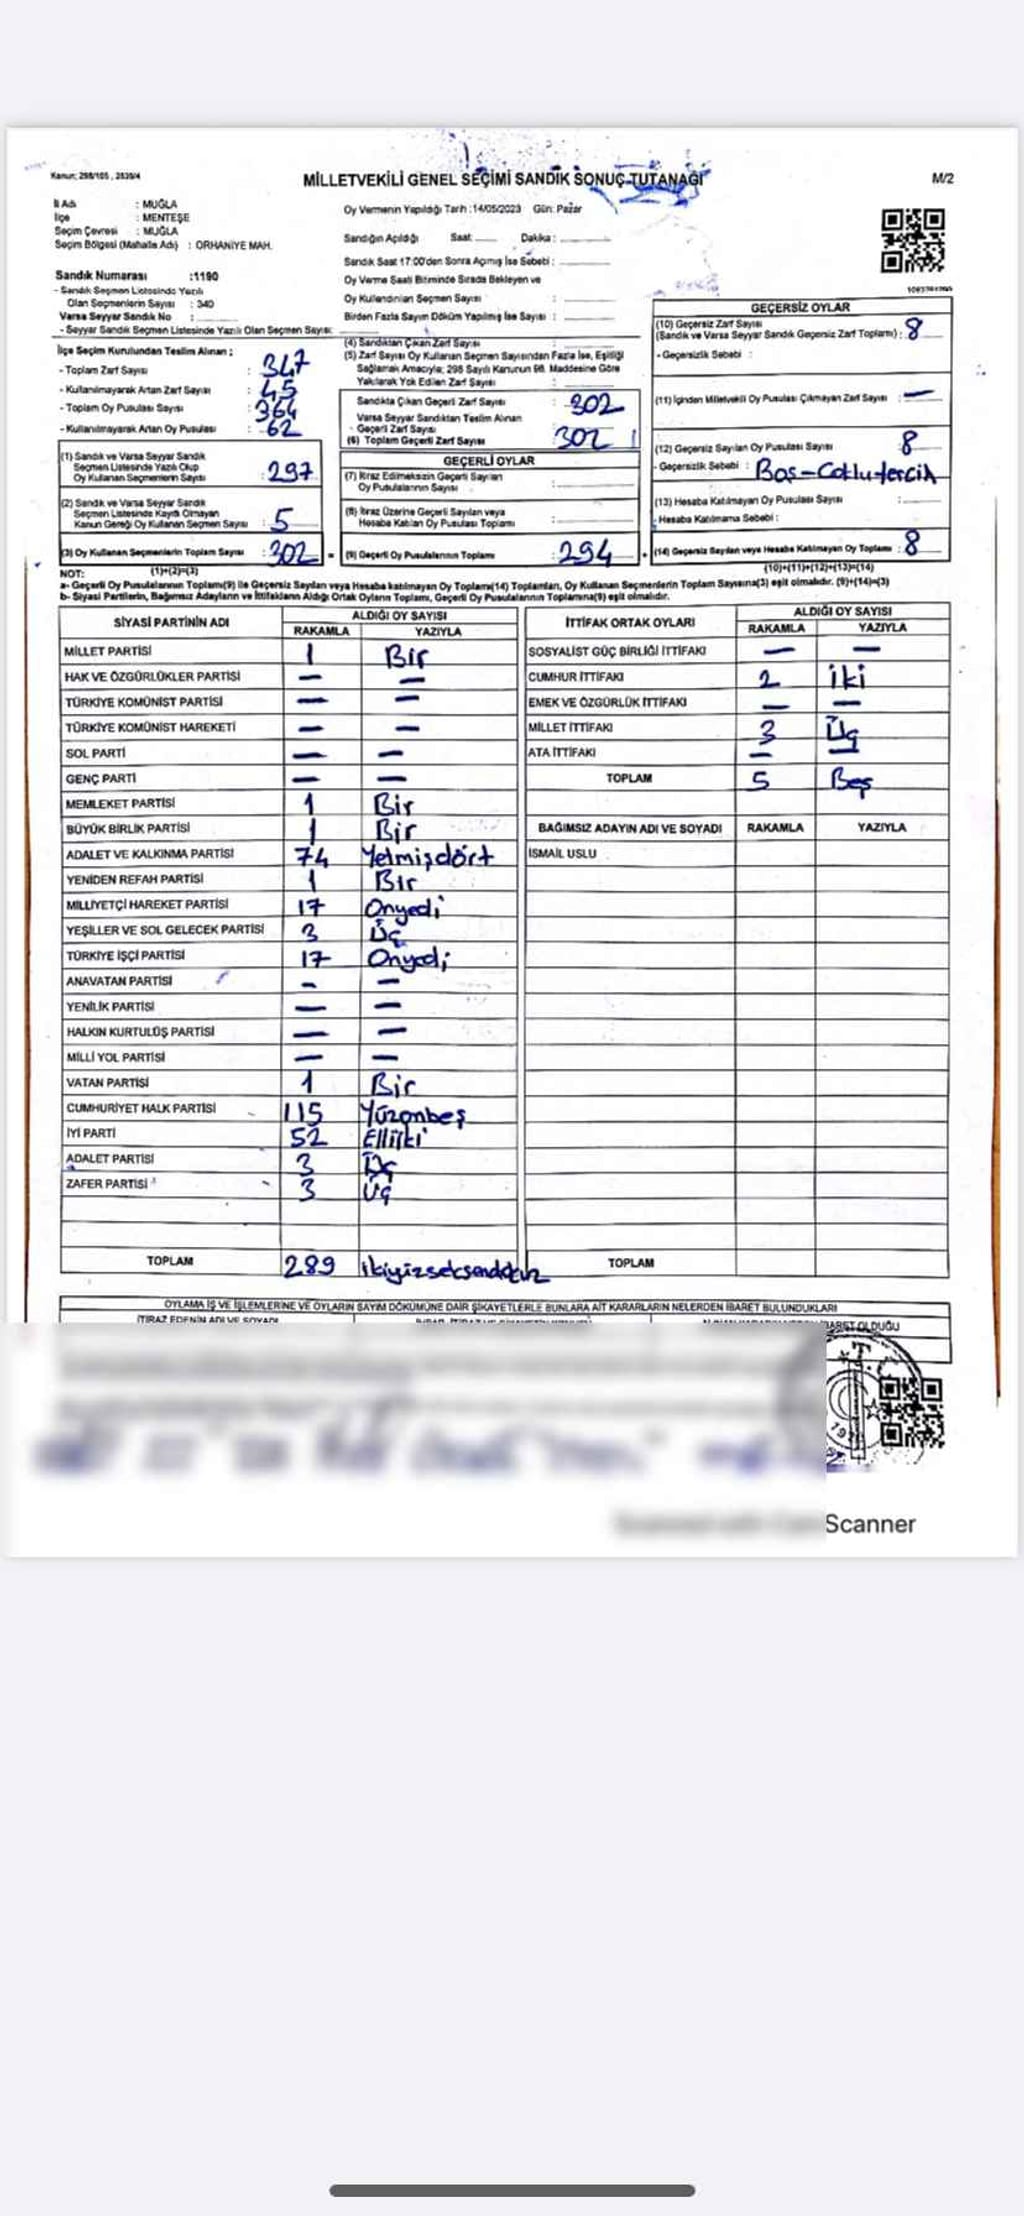 Kanun; 298/105 , 2839/4
MİLLETVEKİLİ GENEL SEÇİMİ SANDIK SONUÇ TUTANAĞI
M/2
İl Adı : MUĞLA
İlçe : MENTEŞE
Seçim Çevresi : MUĞLA
Seçim Bölgesi (Mahalle Adı) : ORHANİYE MAH.
Sandık Numarası :1190
- Sandık Seçmen Listesinde Yazılı
Olan Seçmenlerin Sayısı : 340
Varsa Seyyar Sandık No :
- Seyyar Sandık Seçmen Listesinde Yazılı Olan Seçmen Sayısı:
Oy Vermenin Yapıldığı Tarih :14/05/2023 Gün: Pazar
Sandığın Açıldığı Saat: Dakika :
Sandık Saat 17:00'den Sonra Açılmış İse Sebebi :
Oy Verme Saati Bitiminde Sırada Bekleyen ve
Oy Kullandırılan Seçmen Sayısı :
Birden Fazla Sayım Döküm Yapılmış İse Sayısı :
İlçe Seçim Kurulundan Teslim Alınan ;
- Toplam Zarf Sayısı : 347
- Kullanılmayarak Artan Zarf Sayısı : 45
- Toplam Oy Pusulası Sayısı : 364
- Kullanılmayarak Artan Oy Pusulası : 62
(1) Sandık ve Varsa Seyyar Sandık
Seçmen Listesinde Yazılı Olup
Oy Kullanan Seçmenlerin Sayısı : 297
(2) Sandık ve Varsa Seyyar Sandık
Seçmen Listesinde Kayıtlı Olmayan
Kanun Gereği Oy Kullanan Seçmen Sayısı : 5
(3) Oy Kullanan Seçmenlerin Toplam Sayısı : 302
(1)+(2)=(3)
(4) Sandıktan Çıkan Zarf Sayısı :
(5) Zarf Sayısı Oy Kullanan Seçmen Sayısından Fazla İse, Eşitliği
Sağlamak Amacıyla; 298 Sayılı Kanunun 98. Maddesine Göre
Yakılarak Yok Edilen Zarf Sayısı :
Sandıkta Çıkan Geçerli Zarf Sayısı : 302
Varsa Seyyar Sandıktan Teslim Alınan
Geçerli Zarf Sayısı :
(6) Toplam Geçerli Zarf Sayısı 302
GEÇERLİ OYLAR
(7) İtiraz Edilmeksizin Geçerli Sayılan
Oy Pusulalarının Sayısı :
(8) İtiraz Üzerine Geçerli Sayılan veya
Hesaba Katılan Oy Pusulası Toplamı :
= (9) Geçerli Oy Pusulalarının Toplamı : 294
GEÇERSİZ OYLAR
(10) Geçersiz Zarf Sayısı
(Sandık ve Varsa Seyyar Sandık Geçersiz Zarf Toplamı) : 8
- Geçersizlik Sebebi :
(11) İçinden Milletvekili Oy Pusulası Çıkmayan Zarf Sayısı : —
(12) Geçersiz Sayılan Oy Pusulası Sayısı 8
- Geçersizlik Sebebi : Boş-Çoklu tercih
(13) Hesaba Katılmayan Oy Pusulası Sayısı :
- Hesaba Katılmama Sebebi :
+ (14) Geçersiz Sayılan veya Hesaba Katılmayan Oy Toplamı : 8
(10)+(11)+(12)+(13)=(14)
NOT:
a- Geçerli Oy Pusulalarının Toplamı(9) ile Geçersiz Sayılan veya Hesaba katılmayan Oy Toplamı(14) Toplamları, Oy Kullanan Seçmenlerin Toplam Sayısına(3) eşit olmalıdır. (9)+(14)=(3)
b- Siyasi Partilerin, Bağımsız Adayların ve İttifakların Aldığı Ortak Oyların Toplamı, Geçerli Oy Pusulalarının Toplamına(9) eşit olmalıdır.
SİYASİ PARTİNİN ADI ALDIĞI OY SAYISI
RAKAMLA YAZIYLA
MİLLET PARTİSİ 1 Bir
HAK VE ÖZGÜRLÜKLER PARTİSİ — —
TÜRKİYE KOMÜNİST PARTİSİ — —
TÜRKİYE KOMÜNİST HAREKETİ — —
SOL PARTİ — —
GENÇ PARTİ — —
MEMLEKET PARTİSİ 1 Bir
BÜYÜK BİRLİK PARTİSİ 1 Bir
ADALET VE KALKINMA PARTİSİ 74 Yetmişdört
YENİDEN REFAH PARTİSİ 1 Bir
MİLLİYETÇİ HAREKET PARTİSİ 17 Onyedi
YEŞİLLER VE SOL GELECEK PARTİSİ 3 Üç
TÜRKİYE İŞÇİ PARTİSİ 17 Onyedi
ANAVATAN PARTİSİ — —
YENİLİK PARTİSİ — —
HALKIN KURTULUŞ PARTİSİ — —
MİLLİ YOL PARTİSİ — —
VATAN PARTİSİ 1 Bir
CUMHURİYET HALK PARTİSİ 115 Yüzonbeş
İYİ PARTİ 52 Elliiki
ADALET PARTİSİ 3 Üç
ZAFER PARTİSİ 3 Üç
TOPLAM 289 ikiyüzseksendokuz
İTTİFAK ORTAK OYLARI ALDIĞI OY SAYISI
RAKAMLA YAZIYLA
SOSYALİST GÜÇ BİRLİĞİ İTTİFAKI — —
CUMHUR İTTİFAKI 2 İki
EMEK VE ÖZGÜRLÜK İTTİFAKI — —
MİLLET İTTİFAKI 3 Üç
ATA İTTİFAKI — —
TOPLAM 5 Beş
BAĞIMSIZ ADAYIN ADI VE SOYADI RAKAMLA YAZIYLA
İSMAİL USLU
TOPLAM
OYLAMA İŞ VE İŞLEMLERİNE VE OYLARIN SAYIM DÖKÜMÜNE DAİR ŞİKAYETLERLE BUNLARA AİT KARARLARIN NELERDEN İBARET BULUNDUKLARI
İTİRAZ EDENİN ADI VE SOYADI
OLDUĞU
Scanner